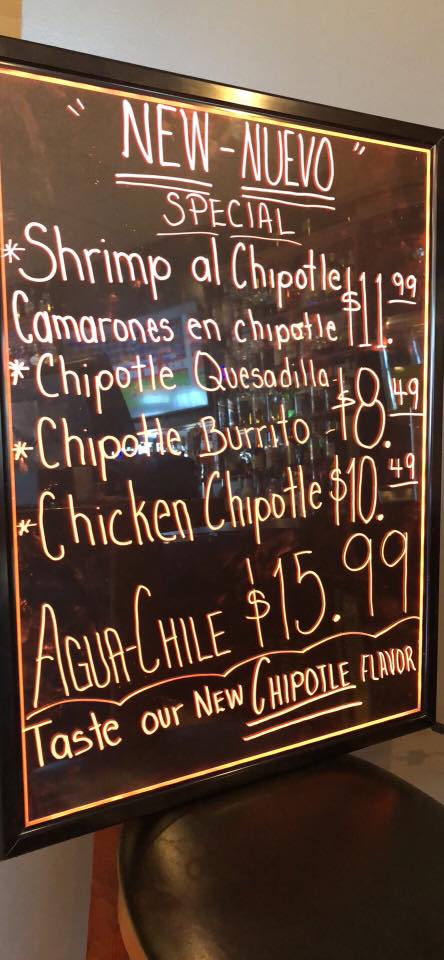 "NEW-NUEVO"
SPECIAL
*Shrimp al Chipotle
Camarones en chipotle $11.99
*Chipotle Quesadilla-
*Chipotle Burrito - $8.49
*Chicken Chipotle $10.49
AGUA-CHILE $15.99
Taste our New CHIPOTLE FLAVOR